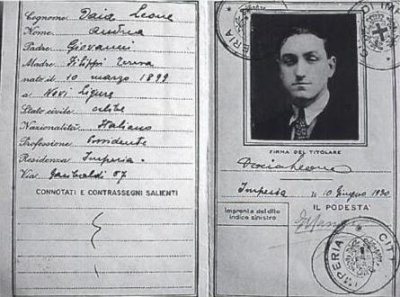 Cognome Daia Leone
Nome Andrea
Padre Giovanni
Madre Filippi Teresa
nato il 10 marzo 1899
a Novi Ligure
Stato civile celibe
Nazionalità Italiano
Professione
Residenza Imperia.
Via Garibaldi 57
CONNOTATI E CONTRASSEGNI SALIENTI
FIRMA DEL TITOLARE
Daia Leone
Imperia li 10 Giugno 1930
Impronta del dito
indice sinistro
IL PODESTÀ
IMPERIA